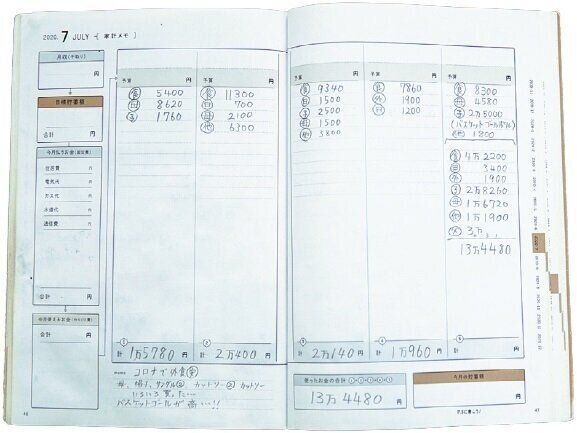 2020. 7 JULY -[ 家計メモ ]
月収(手取り)
円
目標貯蓄額
合計 円
今月払うお金(固定費)
住居費 円
電気代 円
ガス代 円
水道代 円
通信費 円
合計 円
合計 円
予算 円
食 5400
母 8620
子 1760
① 計 1万5780 円
予算 円
食 11300
日 700
母 2100
他 6300
② 計 2万400 円
円
食 9340
日 1500
子 2500
母 1500
他 3800
③ 計 2万140 円
予算 円
食 7860
外 1900
日 1200
④ 計 1万960 円
予算 円
食 8300
母 4580
子 2万5000
(バスケットゴールボール)
他 1800
食 4万2200
日 3400
外 1900
子 2万8260
母 1万6720
他 1万1900
父 3万
13万4480
⑤ 計 円
memo コロナで外食
母、帽子、サンダル カットソー カットソー
いろいろ買った…
バスケットゴールが高い…!!
使ったお金の合計(①+②+③+④+⑤)
13万4480 円
今月の貯蓄額
円
P.5に書こう!
46
47